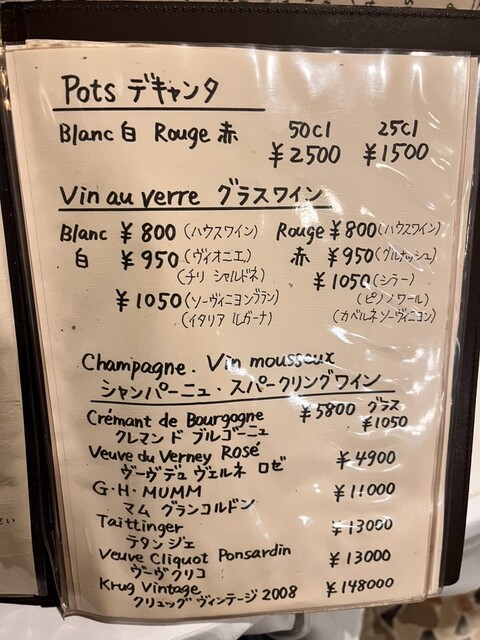 Pots デキャンタ
50cl 25cl
Blanc 白 Rouge 赤 ¥2500 ¥1500
Vin au verre グラスワイン
Blanc ¥800 (ハウスワイン) Rouge ¥800 (ハウスワイン)
白 ¥950 (ヴィオニエ、 赤 ¥950 (グルナッシュ)
(チリ シャルドネ) ¥1050 (シラー)
¥1050 (ソーヴィニヨンブラン) (ピノノワール)
(イタリア ルガーナ) (カベルネソーヴィニヨン)
Champagne. Vin mousseux
シャンパーニュ・スパークリングワイン
Crémant de Bourgogne ¥5800 グラス
クレマンド ブルゴーニュ ¥1050
Veuve du Verney Rosé ¥4900
ヴーヴデュ ヴェルネ ロゼ
G・H・MUMM ¥11000
マム グランコルドン
Taittinger ¥13000
テタンジェ
Veuve Cliquot Ponsardin ¥13000
ヴーヴクリコ
Krug Vintage ¥148000
クリュッグ ヴィンテージ 2008